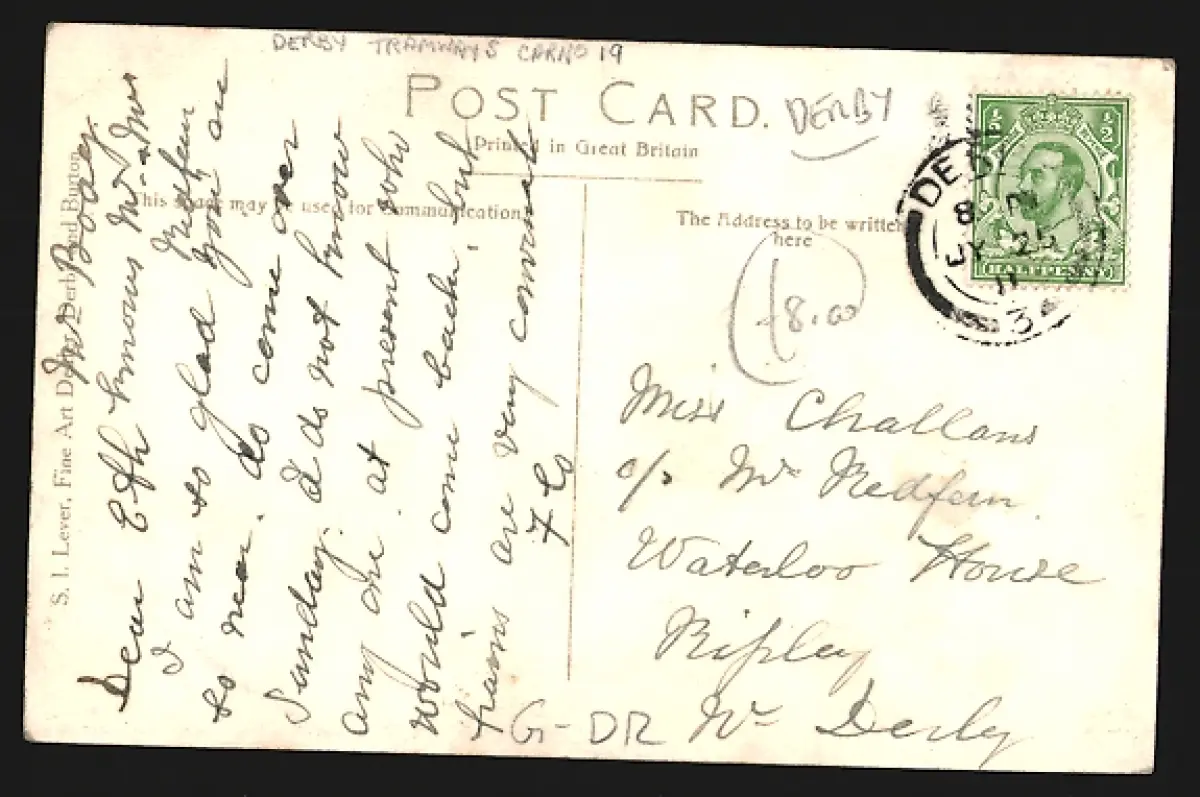 DERBY TRAMWAYS CAR NO 19
POST CARD.
DERBY
Printed in Great Britain
This space may be used for Communication
The Address to be written
here
½ ½
HALFPENNY
DERBY
8
JY 25
11
34
£8.00
S. I. Lever, Fine Art Depot, Derby and Burton
Dear Eth
I am so glad you are
so near. do come over
Sunday. I do not know
any one at present who
would come back, but
trains are very convent
Miss Challans
c/o Mr Redfern
Waterloo House
Ripley
Nr Derby
G-DR